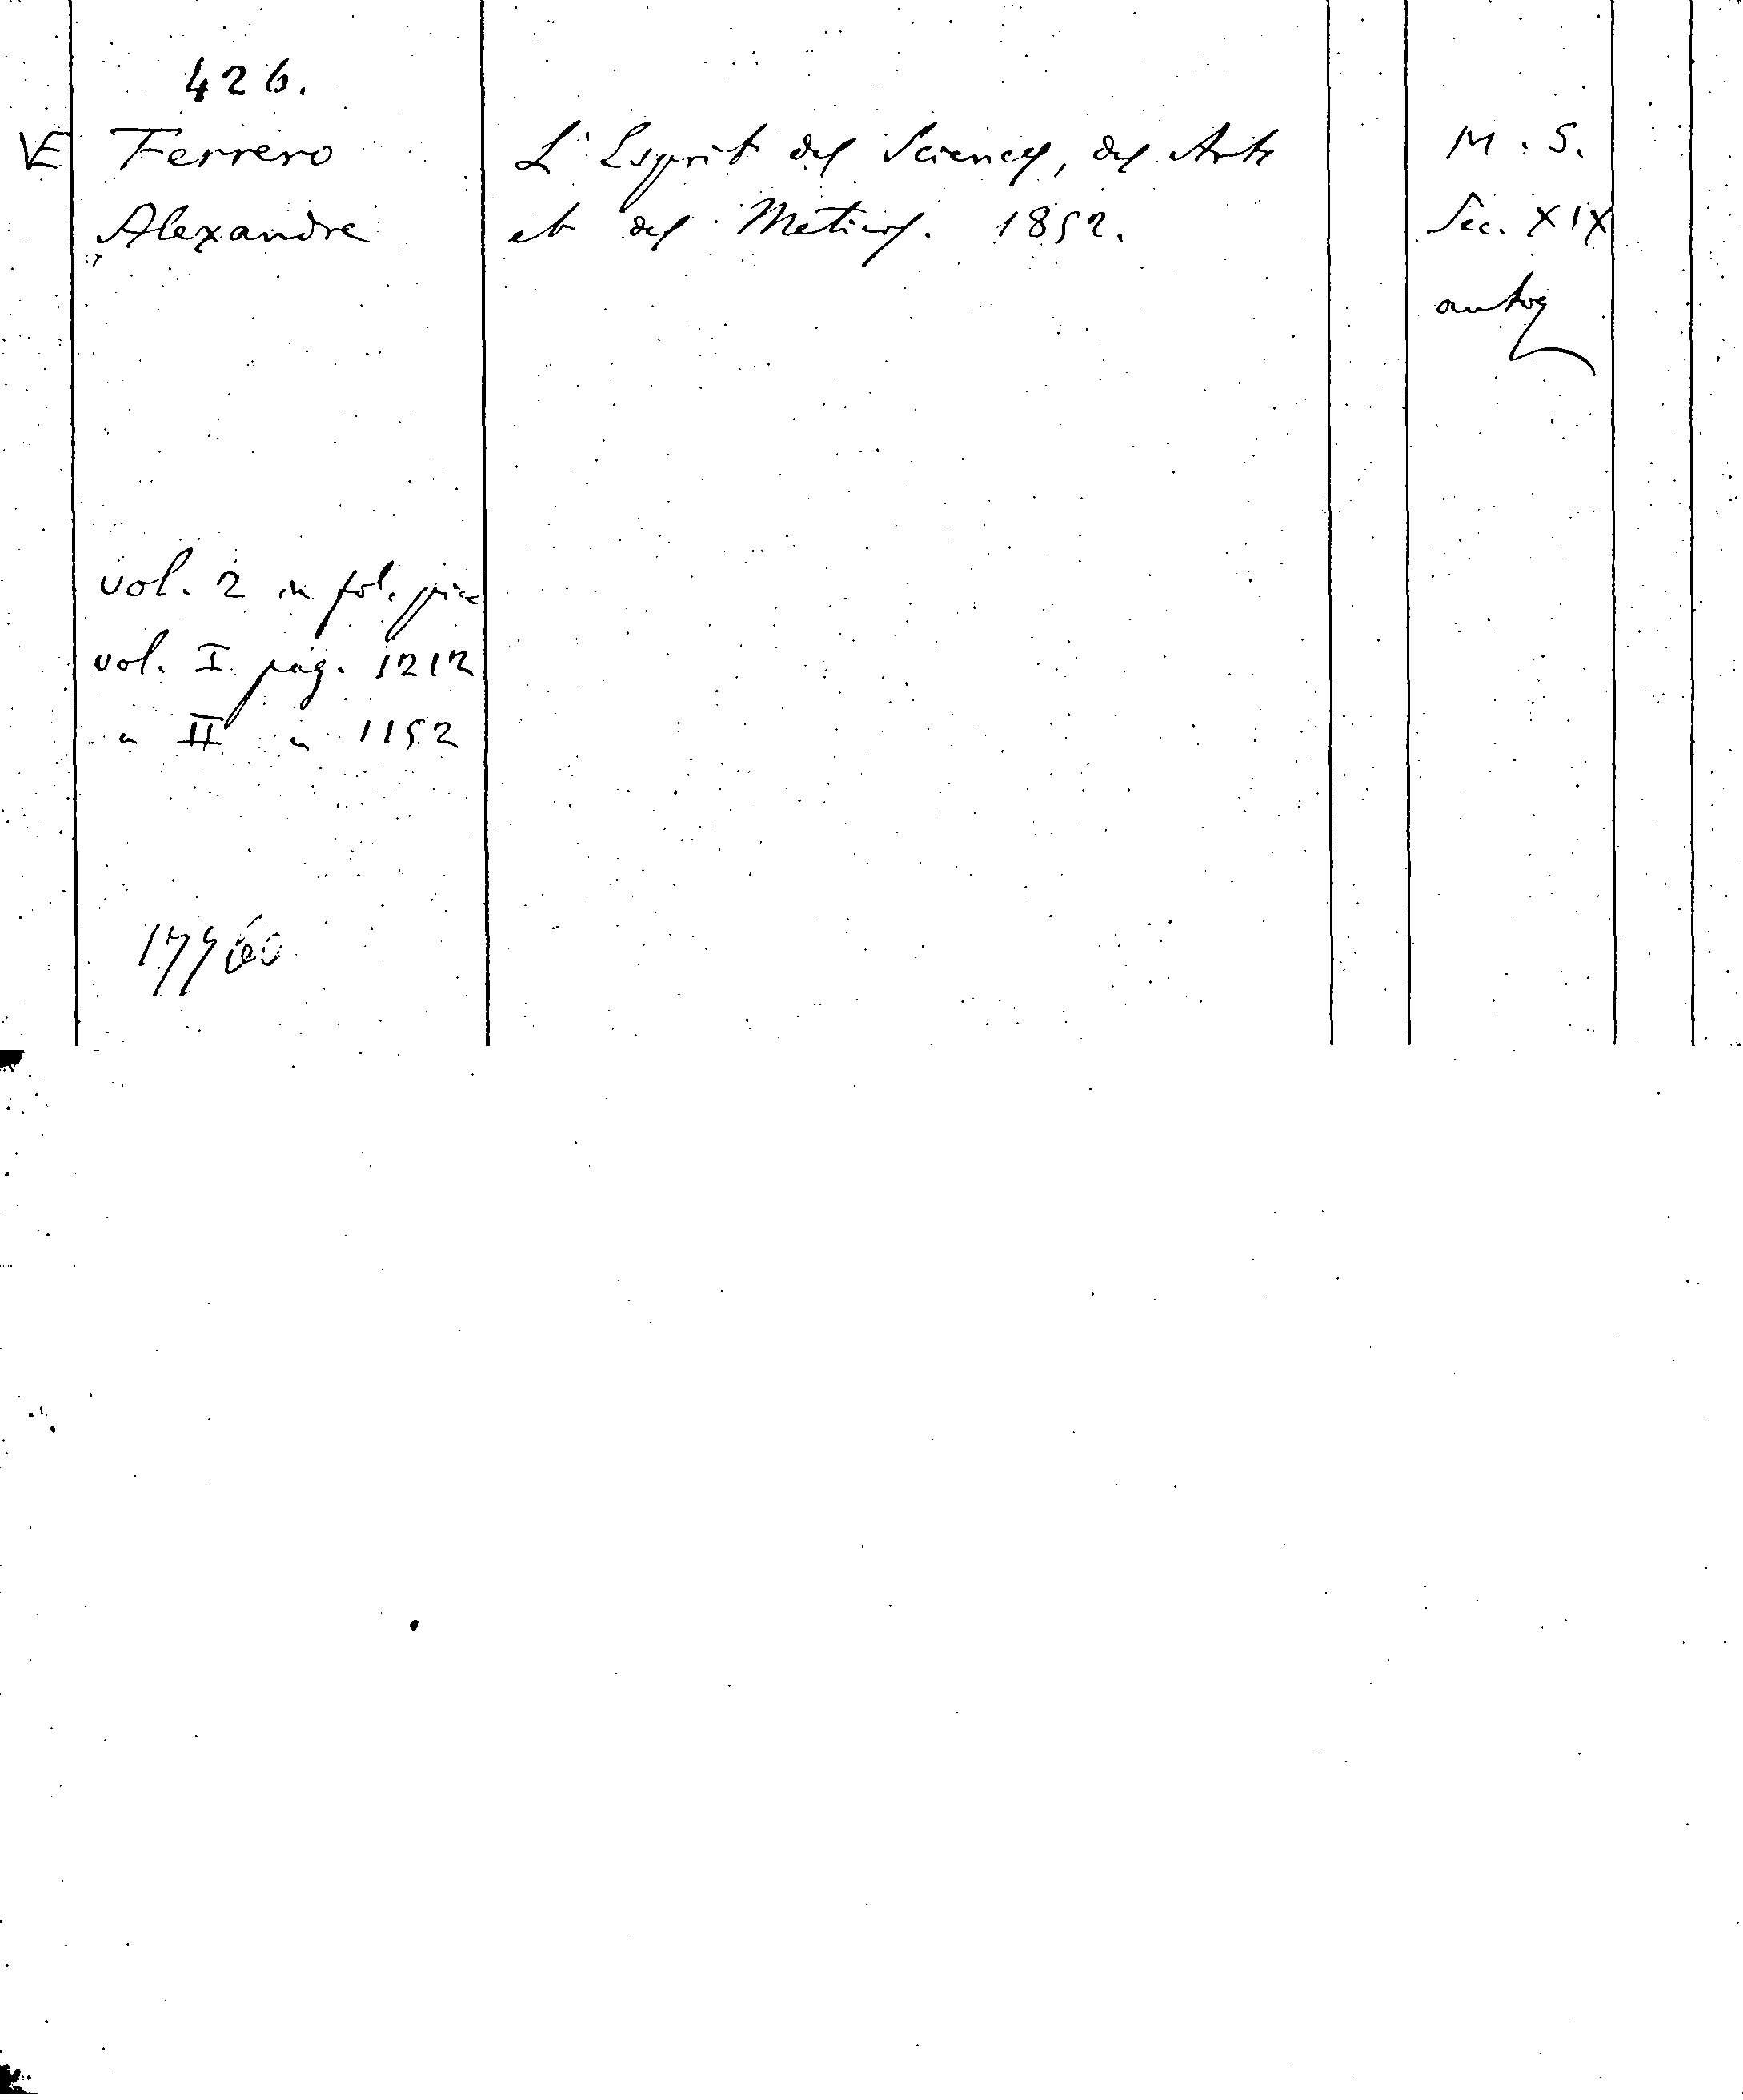 426.
VE Ferrero
Alexandre
L'Esprit des Sciences, des Arts
et des Metiers. 1852.
M. S.
Sec. XIX
autog
vol. 2 in fol. picc
vol. I pag. 1212
" II " 1152
17760